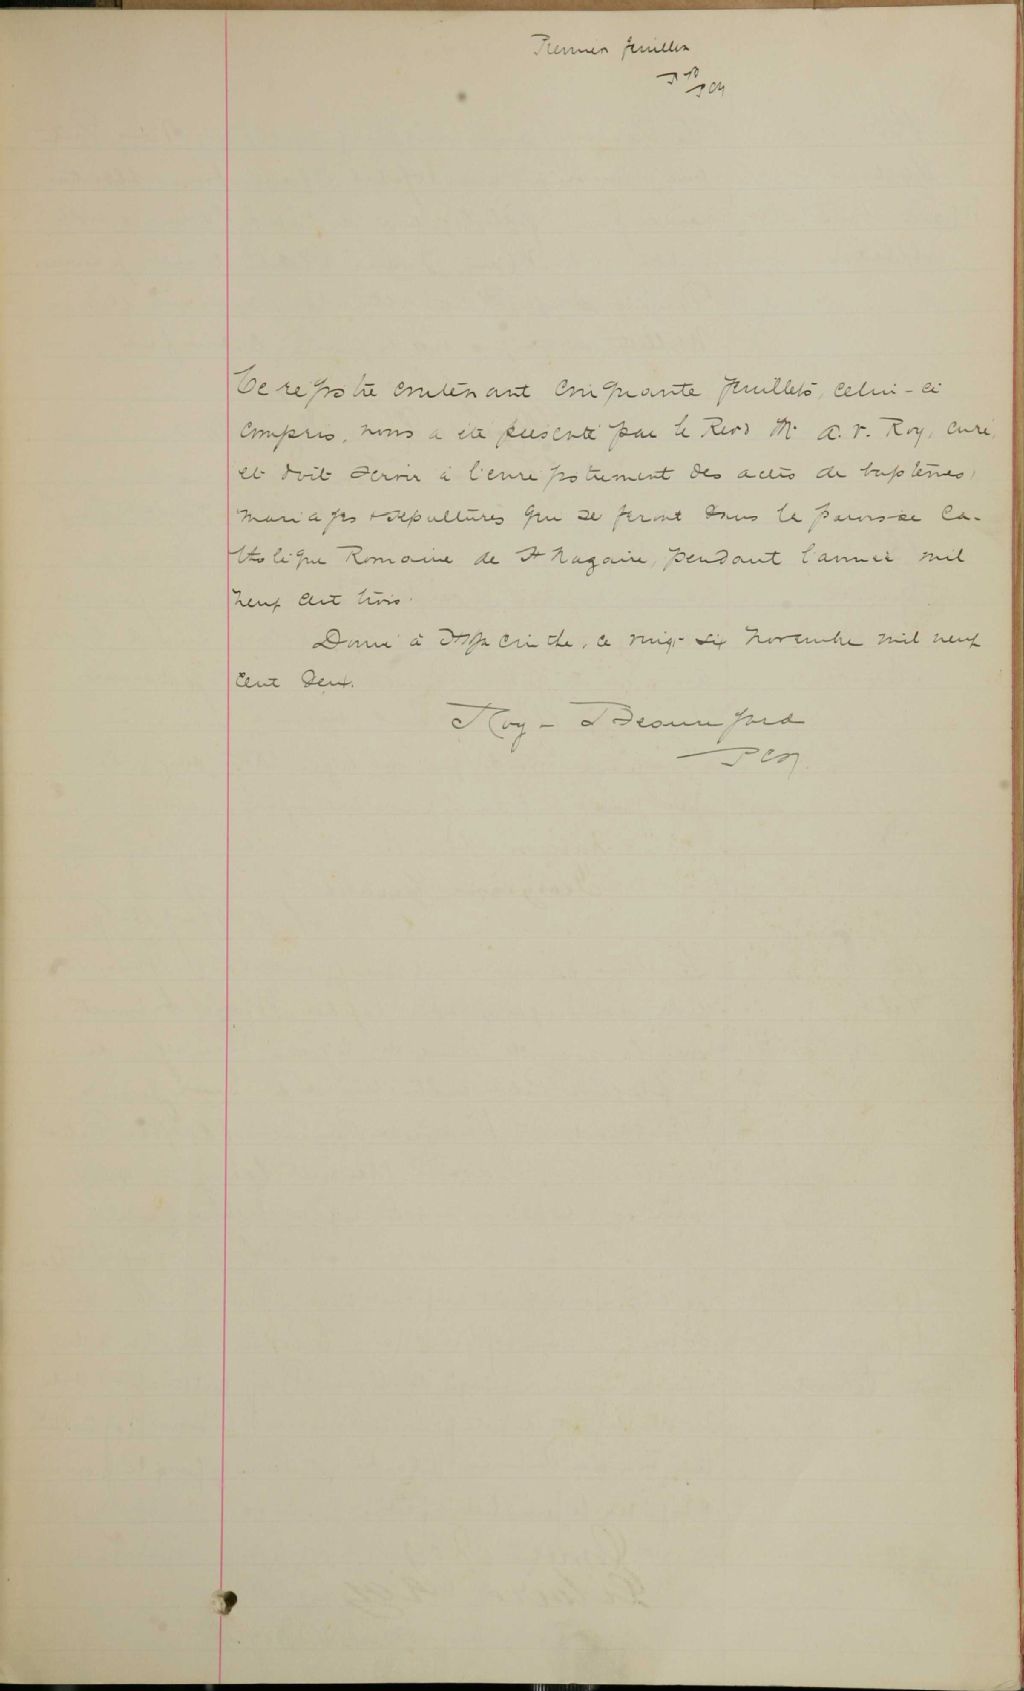 Premier feuillet
R B
PCS
Ce registre contenant cinquante feuillets, celui-ci
compris, nous a été présenté par le Revd Mr A. V. Roy, curé,
et doit servir à l'enregistrement des actes de baptêmes,
mariages & sépultures qui se feront dans la paroisse Ca-
tholique Romaine de St Nazaire, pendant l'année mil
neuf cent trois.
Donné à St Hyacinthe, ce vingt-six novembre mil neuf
cent deux.
Roy - Beauregard
PCS